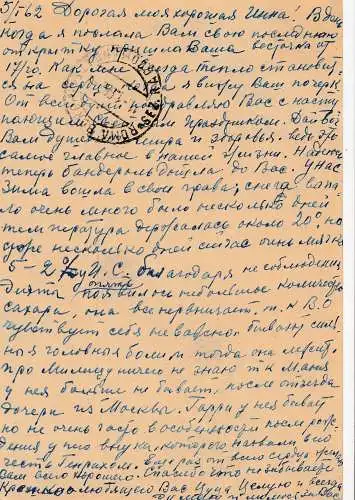 5/I-62 Дорогая моя хорошая Инна! В день
когда я послала Вам свою последнюю
открытку пришла Ваша весточка от
Как мне всегда тепло становит-
ся на сердце когда я вижу Ваш почерк
От всей души поздравляю Вас с насту-
пающим праздником. Дай Вог
Вам душевного мира и здоровья. ведь это
самое главное в нашей жизни. Наверно
теперь бандероль дошла до Вас. У нас
зима вошла в свои права; снега выпа-
ло очень много было несколько дней
температура держалась около 20°, но
уже несколько дней сейчас очень мягко
5-2° У И. С. благодаря не соблюдению
диэты опять появилось небольшое количество
сахара, она все нервничает, т. к В. О
чувствует себя не важно. бывают силь-
ные головные боли и тогда она лежит.
про Милицу ничего не знаю т к Маня
у нея больше не бывает, после отъезда
дочери из Москвы. Гарри у нея бывает
но не очень часто в особенности после рож-
дения у него внука, которого назвали в его
честь Генрихом. Еще раз от всего сердца
Вам было хорошо. Спасибо что не забываете
Крепко любящая Вас Целую и всегда
ROMA